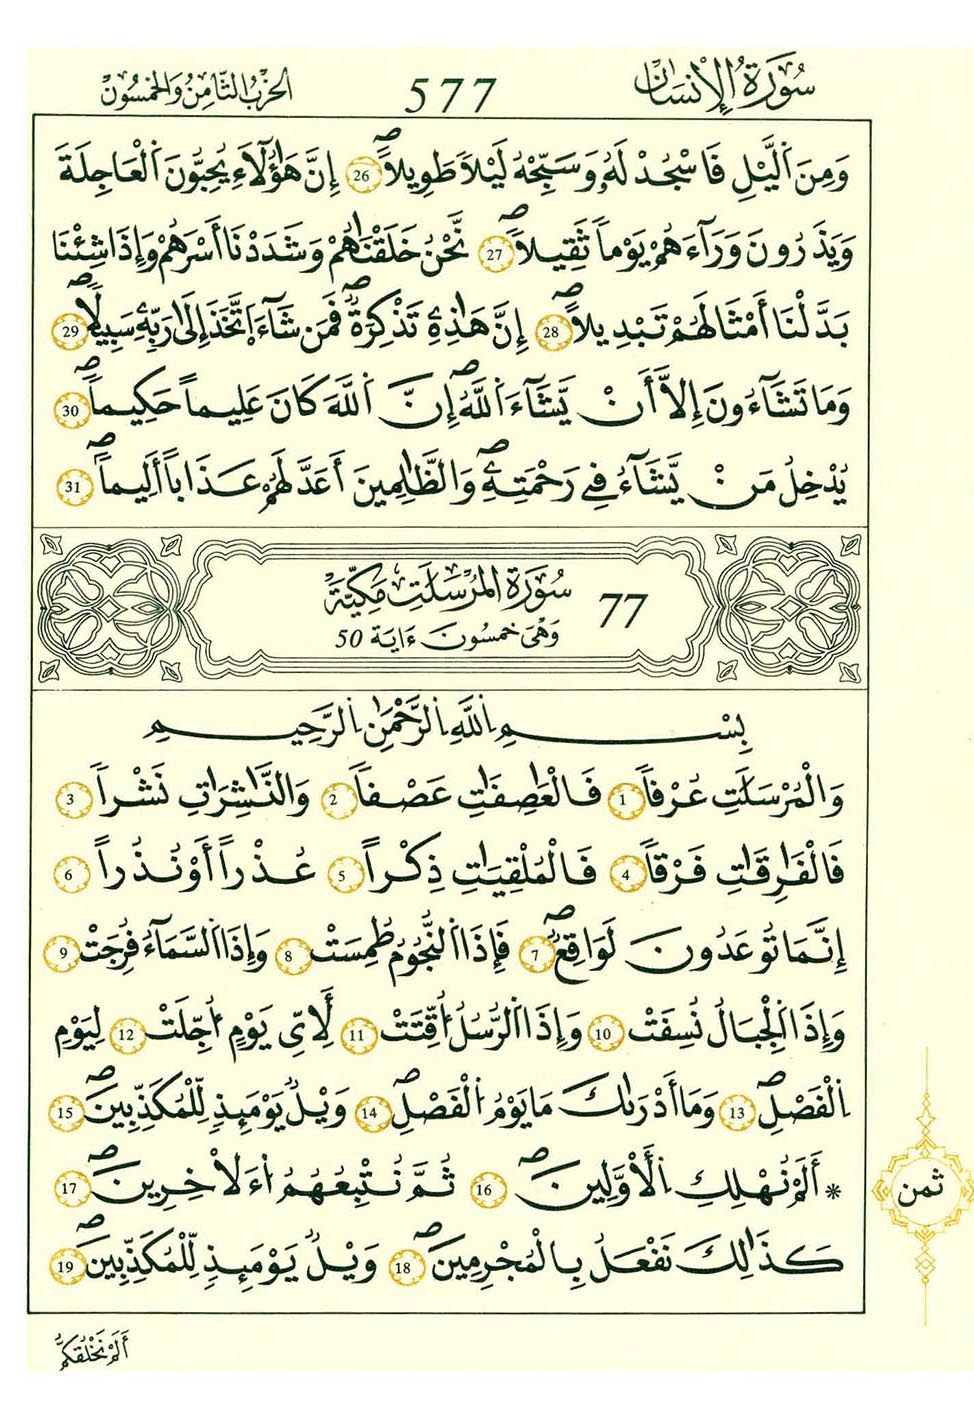 سُورَةُ الْإِنسَانِ 577 الحزب الثامن والخمسون
وَمِنَ اَ۬ليْلِ فَاسْجُدْ لَهُۥ وَسَبِّحْهُ لَيْلاٗ طَوِيلاًۖ 26 إِنَّ هَٰٓؤُلَآءِ يُحِبُّونَ اَ۬لْعَاجِلَةَ
وَيَذَرُونَ وَرَآءَهُمْ يَوْماٗ ثَقِيلاٗۖ 27 نَّحْنُ خَلَقْنَٰهُمْ وَشَدَدْنَا أَسْرَهُمْ وَإِذَا شِئْنَا
بَدَّلْنَا أَمْثَالَهُمْ تَبْدِيلاًۖ 28 إِنَّ هَٰذِهِۦ تَذْكِرَةٞۖ فَمَن شَآءَ اَ۪تَّخَذَ إِلَىٰ رَبِّهِۦ سَبِيلاٗۖ 29
وَمَا تَشَآءُونَ إِلَّا أَنْ يَّشَآءَ اَ۬للَّهُۖ إِنَّ اَ۬للَّهَ كَانَ عَلِيماً حَكِيماٗۖ 30
يُدْخِلُ مَنْ يَّشَآءُ فِے رَحْمَتِهِۦۖ وَالظَّٰلِمِينَ أَعَدَّ لَهُمْ عَذَاباً أَلِيماٗۖ 31
سُورَةُ الْمُرْسَلَٰتِ مَكِّيَّة 77
وَهْيَ خمسون ءَاية 50
بِسْمِ اِ۬للَّهِ اِ۬لرَّحْمَٰنِ اِ۬لرَّحِيمِ
وَالْمُرْسَلَٰتِ عُرْفاٗ 1 فَالْعَٰصِفَٰتِ عَصْفاٗ 2 وَالنَّٰشِرَٰتِ نَشْراٗ 3
فَالْفَٰرِقَٰتِ فَرْقاٗ 4 فَالْمُلْقِيَٰتِ ذِكْراً 5 عُذْراً أَوْ نُذُراً 6
إِنَّمَا تُوعَدُونَ لَوَٰقِعٞۖ 7 فَإِذَا اَ۬لنُّجُومُ طُمِسَتْ 8 وَإِذَا اَ۬لسَّمَآءُ فُرِجَتْ 9
وَإِذَا اَ۬لْجِبَالُ نُسِفَتْ 10 وَإِذَا اَ۬لرُّسُلُ أُقِّتَتْ 11 لِأَيِّ يَوْمٍ أُجِّلَتْ 12 لِيَوْمِ
اِ۬لْفَصْلِۖ 13 وَمَا أَدْرَىٰكَ مَا يَوْمُ اُ۬لْفَصْلِۖ 14 وَيْلٞ يَوْمَئِذٖ لِّلْمُكَذِّبِينَۖ 15
* أَلَمْ نُهْلِكِ اِ۬لْأَوَّلِينَۖ 16 ثُمَّ نُتْبِعُهُمُ اُ۬لْأٓخِرِينَۖ 17
كَذَٰلِكَ نَفْعَلُ بِالْمُجْرِمِينَۖ 18 وَيْلٞ يَوْمَئِذٖ لِّلْمُكَذِّبِينَۖ 19
ثمن
أَلَمْ نَخْلُقكُّم